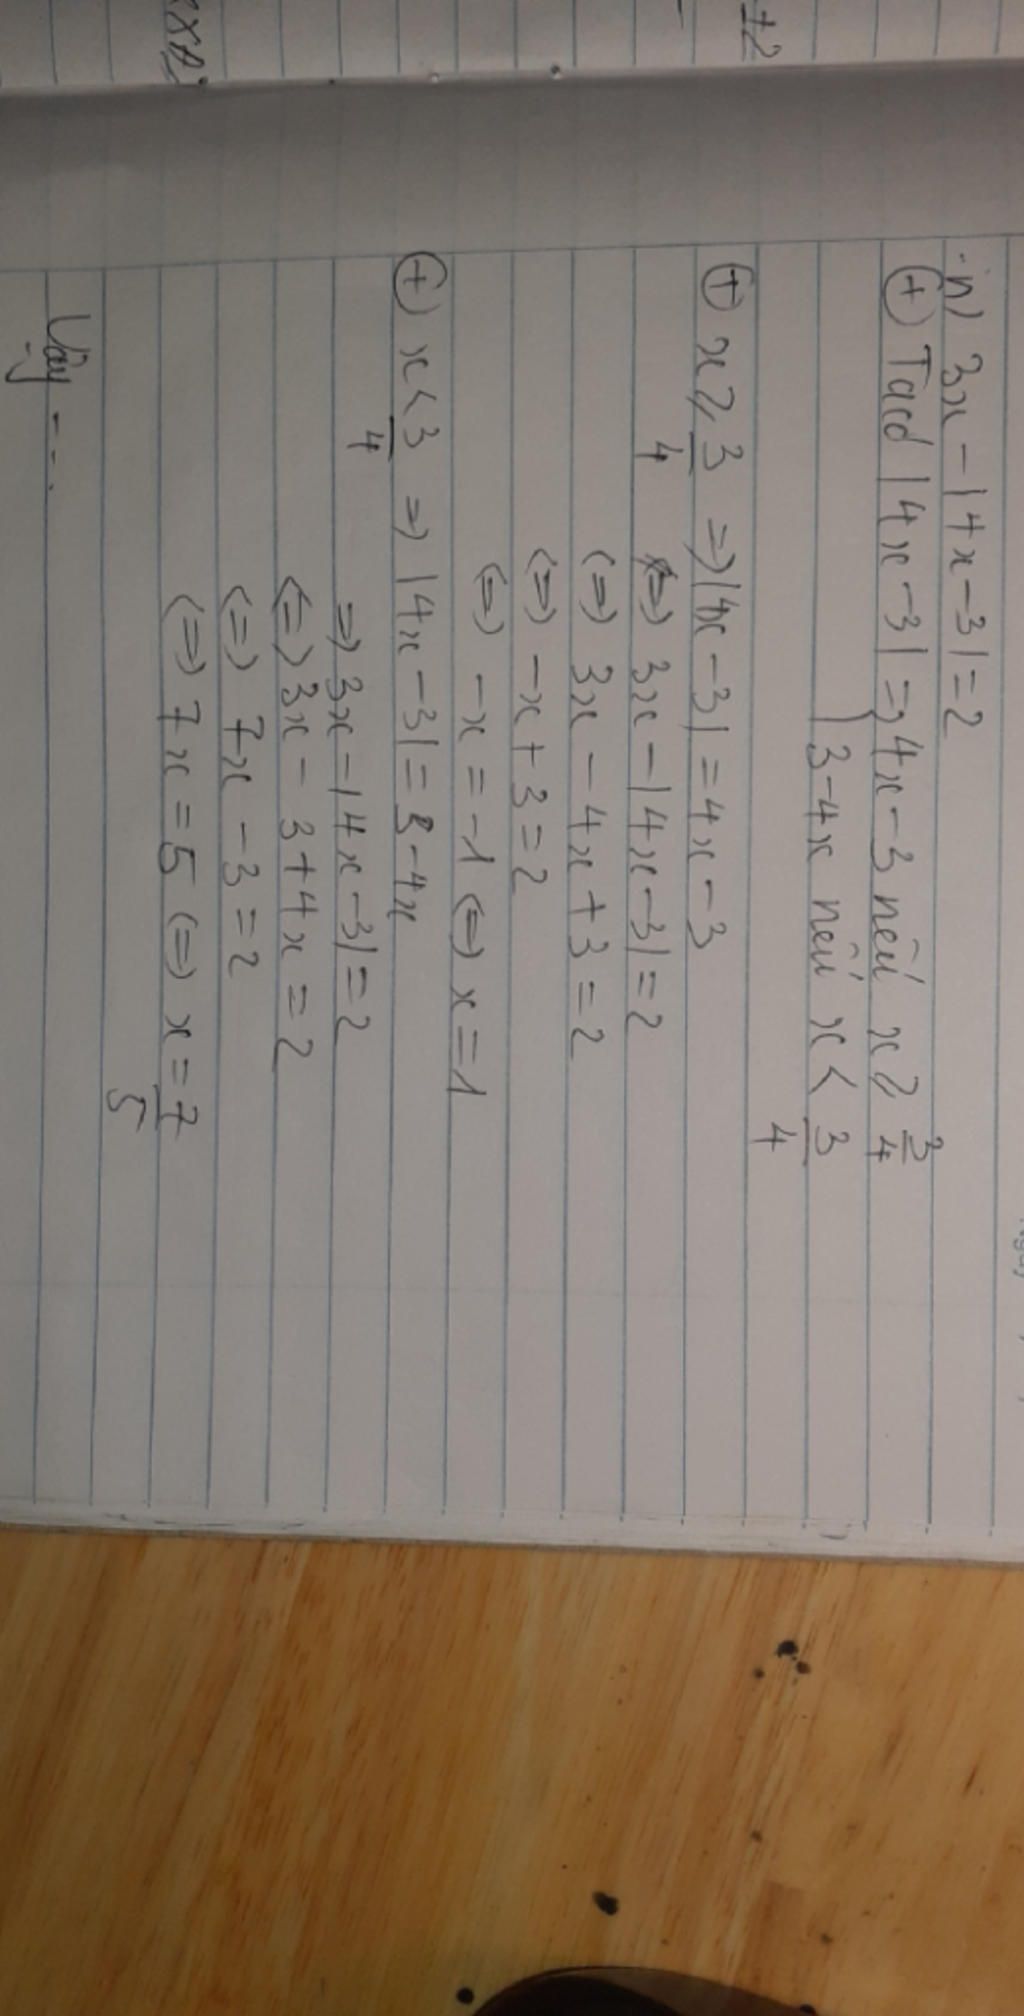 n) 3x - |4x - 3| = 2
(+) Ta có |4x - 3| = { 4x - 3 nếu x ≥ 3/4
3 - 4x nếu x < 3/4
(+) x ≥ 3/4 => |4x - 3| = 4x - 3
(=) 3x - |4x - 3| = 2
(=) 3x - 4x + 3 = 2
(=) -x + 3 = 2
(=) -x = -1 (=) x = 1
(+) x < 3/4 => |4x - 3| = 3 - 4x
=> 3x - |4x - 3| = 2
(=) 3x - 3 + 4x = 2
(=) 7x - 3 = 2
(=) 7x = 5 (=) x = 7/5
Vậy ---.
+2